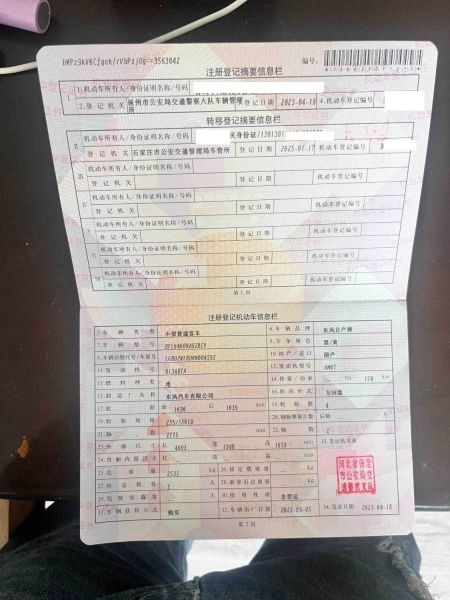 注册登记摘要信息栏
编号:
1.机动车所有人/身份证明名称/号码
2.登记机关 涿州市公安局交通警察大队车辆管理所 3.登记日期 2023-04-18 4.机动车登记编号
转移登记摘要信息栏
机动车所有人/身份证明名称/号码 民身份证/
登记机关 石家庄市公安交通管理局车管所 登记日期 2025-01-17 机动车登记编号
机动车所有人/身份证明名称/号码
登记机关 登记日期 机动车登记编号
机动车所有人/身份证明名称/号码
登记机关 登记日期 机动车登记编号
机动车所有人/身份证明名称/号码
登记机关 登记日期 机动车登记编号
机动车所有人/身份证明名称/号码
登记机关 登记日期 机动车登记编号
机动车所有人/身份证明名称/号码
登记机关 登记日期 机动车登记编号
第1页
注册登记机动车信息栏
5.车辆类型 小型普通客车 6.车辆品牌 东风日产牌
7.车辆型号 8.车身颜色 黑/黄
9.车辆识别代号/车架号 10.国产/进口 国产
11.发动机号 12.发动机型号
13.燃料种类 电 14.排量/功率 ml/ 178 kw
15.制造厂名称 东风汽车有限公司 16.转向形式 方向盘
17.轮距 前 后 mm 18.轮胎数 4
19.轮胎规格 235/55R19 20.钢板弹簧片数 后轴 片
21.轴距 2775 mm 22.轴数 2 33.发证机关章
23.外廓尺寸 长 宽 高 mm
24.货厢内部尺寸 长 宽 高 mm
25.总质量 2535 kg 26.核定载质量 kg
27.核定载客 5 人 28.准牵引总质量 kg
29.驾驶室载客 人 30.使用性质 非营运
31.车辆获得方式 购买 32.车辆出厂日期 34.发证日期 2023-04-18
河北省保定市公安局交通警察支队
第2页